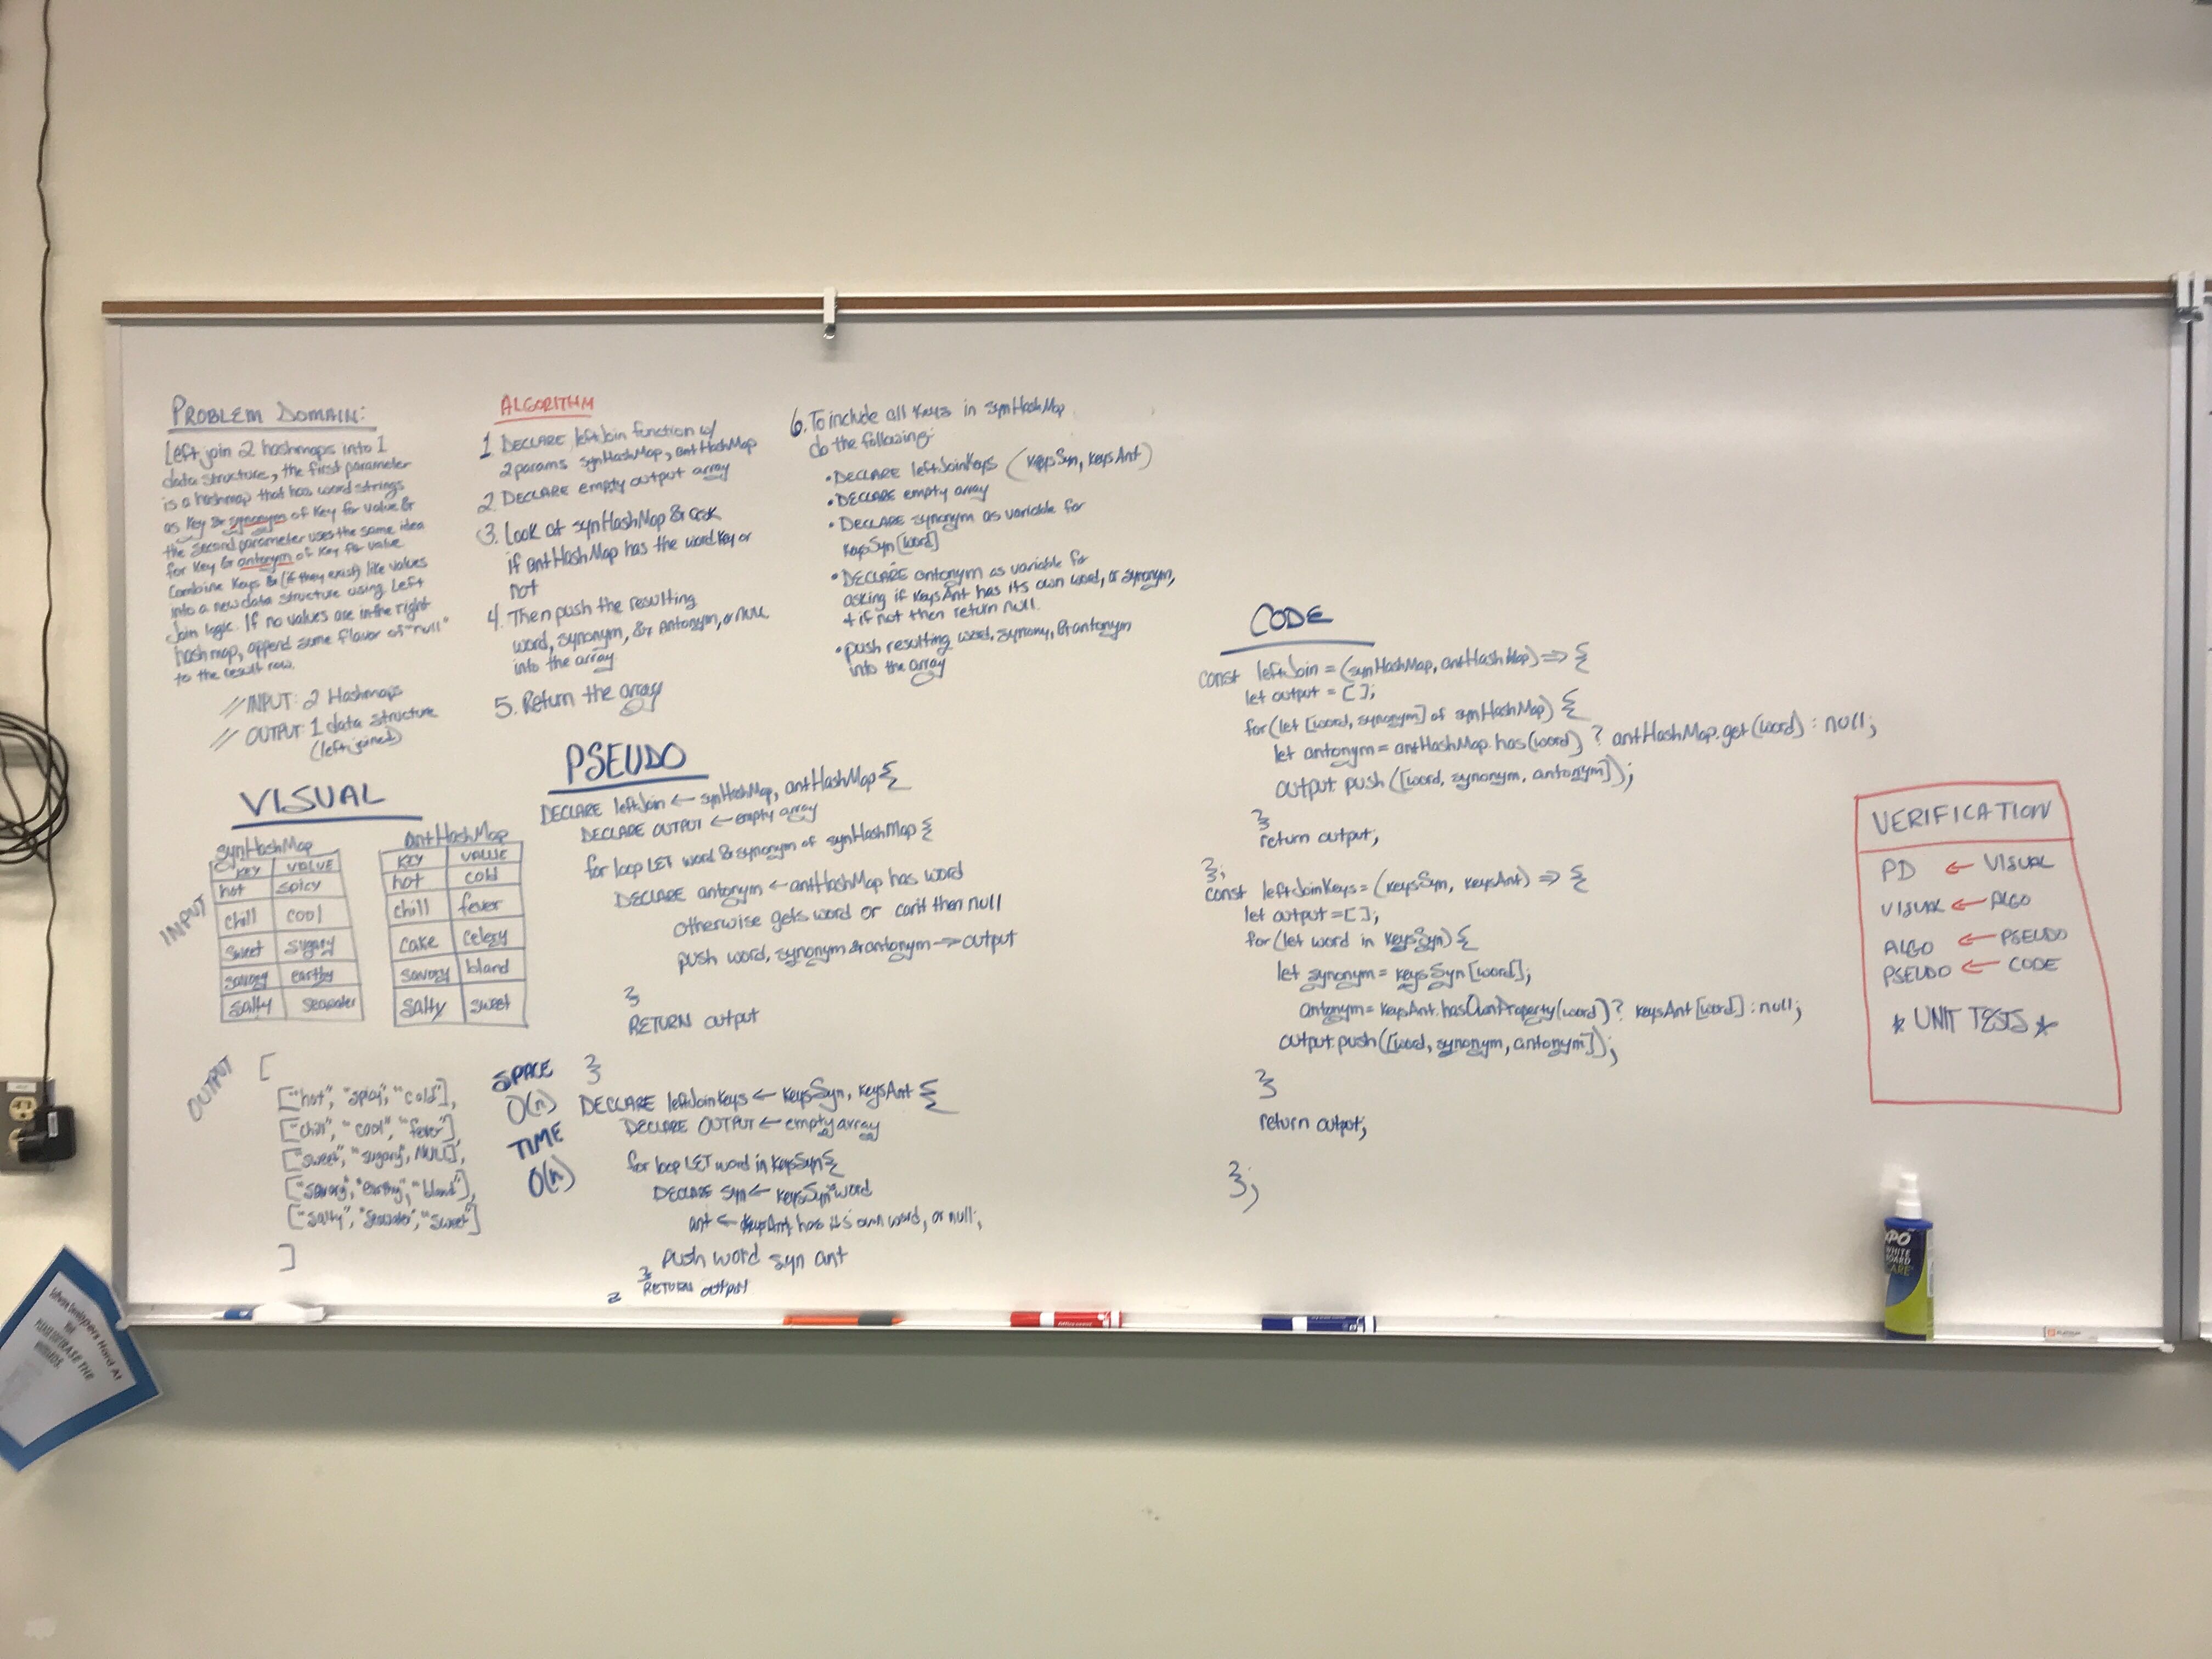 PROBLEM DOMAIN:
Left join 2 hashmaps into 1
data structure, the first parameter
is a hashmap that has word strings
as key & synonym of key for value &
the second parameter uses the same idea
for key & antonym of key for value
Combine keys & (if they exist) like values
into a new data structure using Left
Join logic. If no values are in the right
hashmap, append some flavor of "null"
to the result row.
// INPUT: 2 Hashmaps
// OUTPUT: 1 data structure
(left joined)
VISUAL
INPUT
synHashMap
KEY VALUE
hot spicy
chill cool
sweet sugary
savory earthy
salty seawater
antHashMap
KEY VALUE
hot cold
chill fever
cake celery
savory bland
salty sweet
OUTPUT
[
["hot", "spicy", "cold"],
["chill", "cool", "fever"],
["sweet", "sugary", NULL],
["savory", "earthy", "bland"],
["salty", "seawater", "sweet"]
]
ALGORITHM
1. DECLARE leftJoin function w/
2 params synHashMap, antHashMap
2. DECLARE empty output array
3. Look at synHashMap & ask
if antHashMap has the word key or
not
4. Then push the resulting
word, synonym, & antonym, or NULL
into the array
5. Return the array
6. To include all keys in synHashMap
do the following:
• DECLARE leftJoinKeys (keysSyn, keysAnt)
• DECLARE empty array
• DECLARE synonym as variable for
keysSyn[word]
• DECLARE antonym as variable for
asking if keysAnt has its own word, or synonym,
+ if not then return null.
• push resulting word, synony, & antonym
into the array
PSEUDO
DECLARE leftJoin ← synHashMap, antHashMap {
DECLARE OUTPUT ← empty array
for loop LET word & synonym of synHashMap {
DECLARE antonym ← antHashMap has word
otherwise gets word or can't then null
push word, synonym & antonym → output
}
RETURN output
}
SPACE
O(n)
TIME
O(n)
DECLARE leftJoinKeys ← keysSyn, keysAnt {
DECLARE OUTPUT ← empty array
for loop LET word in keysSyn {
DECLARE syn ← keysSyn word
ant ← keysAnt has it's own word, or null;
push word syn ant
}
RETURN output
}
CODE
const leftJoin = (synHashMap, antHashMap) => {
let output = [];
for (let [word, synonym] of synHashMap) {
let antonym = antHashMap.has(word) ? antHashMap.get(word) : null;
output.push([word, synonym, antonym]);
}
return output;
};
const leftJoinKeys = (keysSyn, keysAnt) => {
let output = [];
for (let word in keysSyn) {
let synonym = keysSyn[word];
antonym = keysAnt.hasOwnProperty(word) ? keysAnt[word] : null;
output.push([word, synonym, antonym]);
}
return output;
};
VERIFICATION
PD ← VISUAL
VISUAL ← ALGO
ALGO ← PSEUDO
PSEUDO ← CODE
* UNIT TESTS *
EXPO
WHITE
BOARD
CARE
Software Developers Hard At
Work
PLEASE DON'T ERASE THE